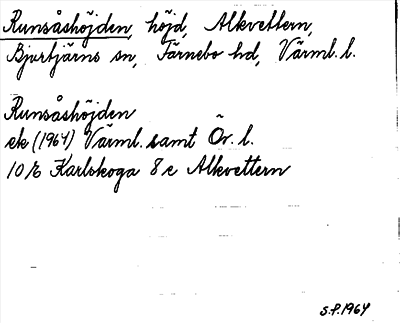 Runsåshöjden, höjd, Alkvettern,
Bjurtjärns sn, Färnebo hd, Värml. l.
Runsåshöjden
ek (1964) Värml. samt Ör. l.
10 E Karlskoga 8 c Alkvettern
S.P. 1964